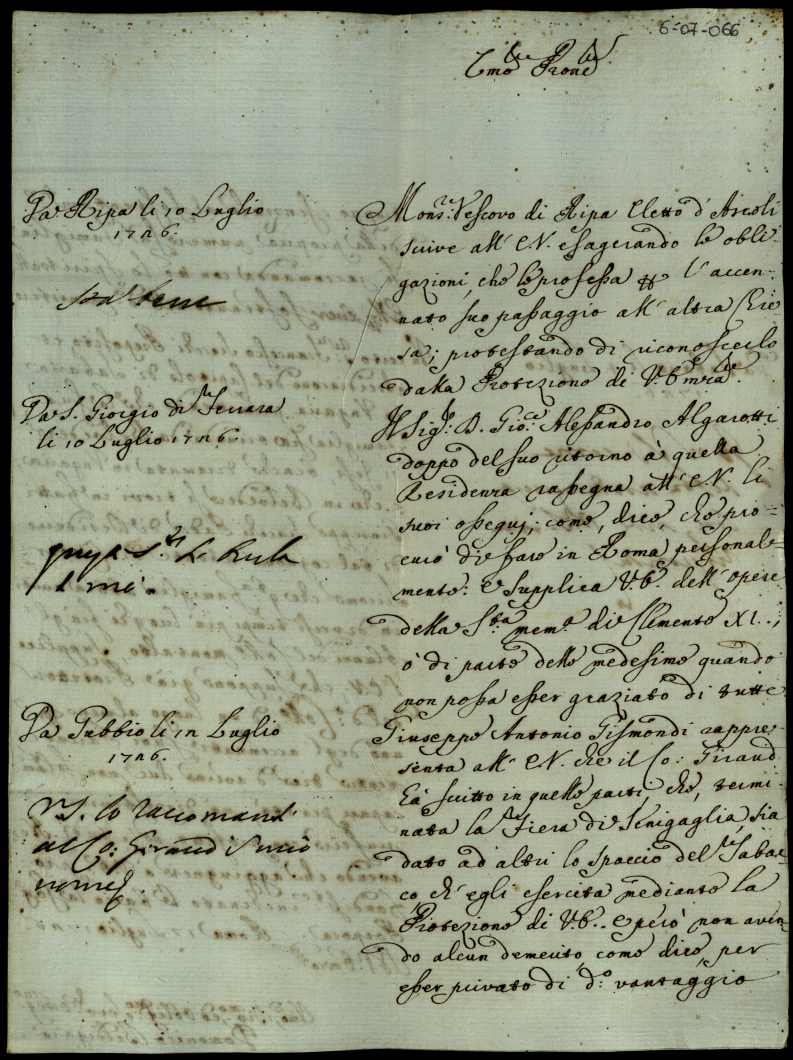 6-07-066
Emo. Prone.
Da Ripa li 10 Luglio
1726.
Sta bene
Mons.re Vescovo di Ripa Eletto d'Ascoli
scrive all' E.V. esagerando le obli-
gazioni, che le professa l'accen-
nato suo passaggio all' altra Chie
sa; protestando di riconoscerlo
dalla Protezione di V. Emza.
Da S. Giorgio di Ferrara
li 10 Luglio 1726.
Il Sig.r D. Gio: Alessandro Algarotti
doppo del suo ritorno à quella
Residenza rassegna all' E.V. li
suoi ossequj, come, dice, che pro=
curò di fare in Roma personal-
mente: e supplica V.E. dell' opere
della S.ta mem.a di Clemente XI.,
ò di parte delle medesime quando
non possa esser graziato di tutte
Da Gubbio li 12 Luglio
1726.
N.S. lo raccomandi
al Co: Giraud in mio
nome
Giuseppe Antonio Gismondi rappre
senta all' E.V. che il Co: Giraud
hà scritto in quelle parti, che, termi
nata la Fiera di Senigaglia, sia
dato ad altri lo spaccio del Tabac
co ch' egli esercita mediante la
Protezione di V.E.. e però non aven
do alcun demerito come dice, per
esser privato di d.o vantaggio